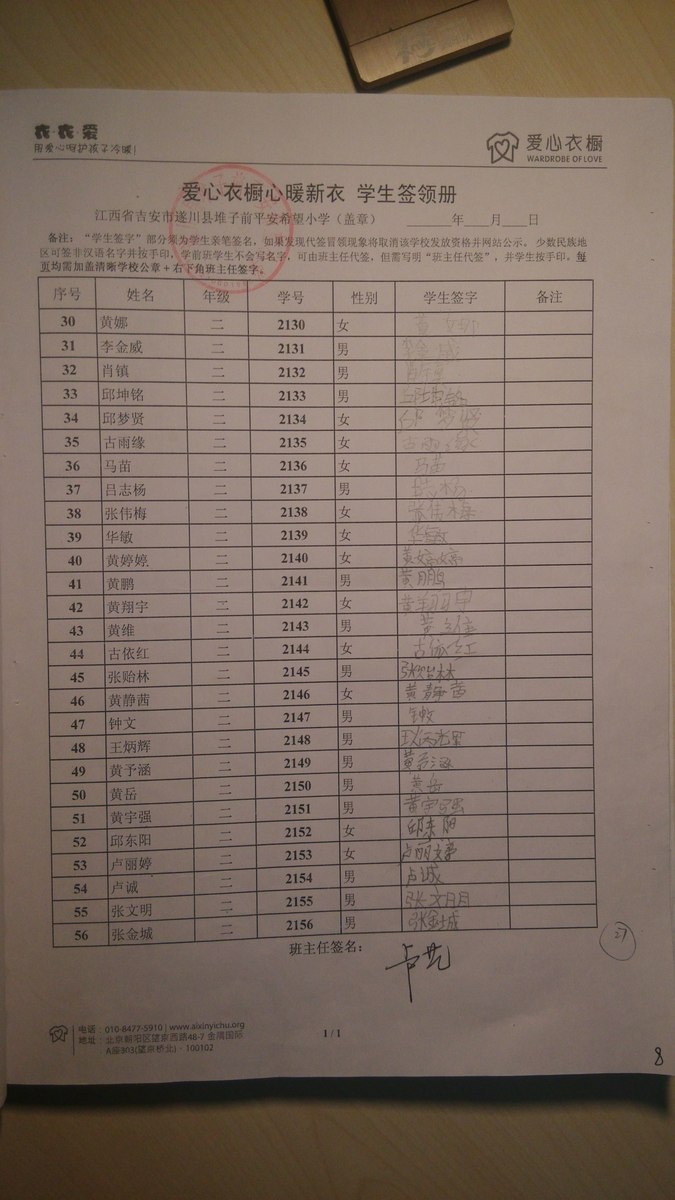 衣·衣·爱
用爱心呵护孩子冷暖!
爱心衣橱
WARDROBE OF LOVE
爱心衣橱心暖新衣 学生签领册
江西省吉安市遂川县堆子前平安希望小学(盖章) ____年____月____日
备注:“学生签字”部分须为学生亲笔签名,如果发现代签冒领现象将取消该学校发放资格并网站公示。 少数民族地
区可签非汉语名字并按手印。学前班学生不会写名字,可由班主任代签,但需写明“班主任代签”,并学生按手印。每
页均需加盖清晰学校公章+右下角班主任签字。
序号 姓名 年级 学号 性别 学生签字 备注
30 黄娜 二 2130 女 黄娜
31 李金威 二 2131 男 李金威
32 肖镇 二 2132 男 肖镇
33 邱坤铭 二 2133 男 邱坤铭
34 邱梦贤 二 2134 女 邱梦贤
35 古雨缘 二 2135 女 古雨缘
36 马苗 二 2136 女 马苗
37 吕志杨 二 2137 男 吕志杨
38 张伟梅 二 2138 女 张伟梅
39 华敏 二 2139 女 华敏
40 黄婷婷 二 2140 女 黄婷婷
41 黄鹏 二 2141 男 黄鹏
42 黄翔宇 二 2142 女 黄翔宇
43 黄维 二 2143 男 黄维
44 古依红 二 2144 女 古依红
45 张贻林 二 2145 男 张贻林
46 黄静茜 二 2146 女 黄静茜
47 钟文 二 2147 男 钟文
48 王炳辉 二 2148 男 王炳辉
49 黄予涵 二 2149 男 黄予涵
50 黄岳 二 2150 男 黄岳
51 黄宇强 二 2151 男 黄宇强
52 邱东阳 二 2152 女 邱东阳
53 卢丽婷 二 2153 女 卢丽婷
54 卢诚 二 2154 男 卢诚
55 张文明 二 2155 男 张文明
56 张金城 二 2156 男 张金城
班主任签名: 卢艺
27
电话:010-8477-5910 | www.aixinyichu.org
地址:北京朝阳区望京西路48-7 金隅国际
A座803(望京桥北)· 100102
1 / 1
8